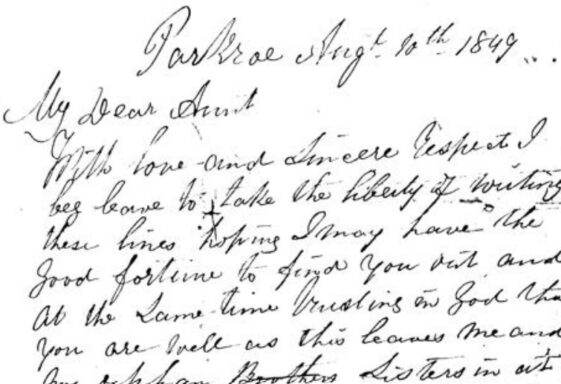 Parkroe Augt 10th 1849
My Dear Aunt
With love and sincere respect I
beg leave to take the liberty of writing
these lines hoping I may have the
good fortune to find you out and
at the same time trusting in God tha
you are well as this leaves me and
my orphan Brothers Sisters in at